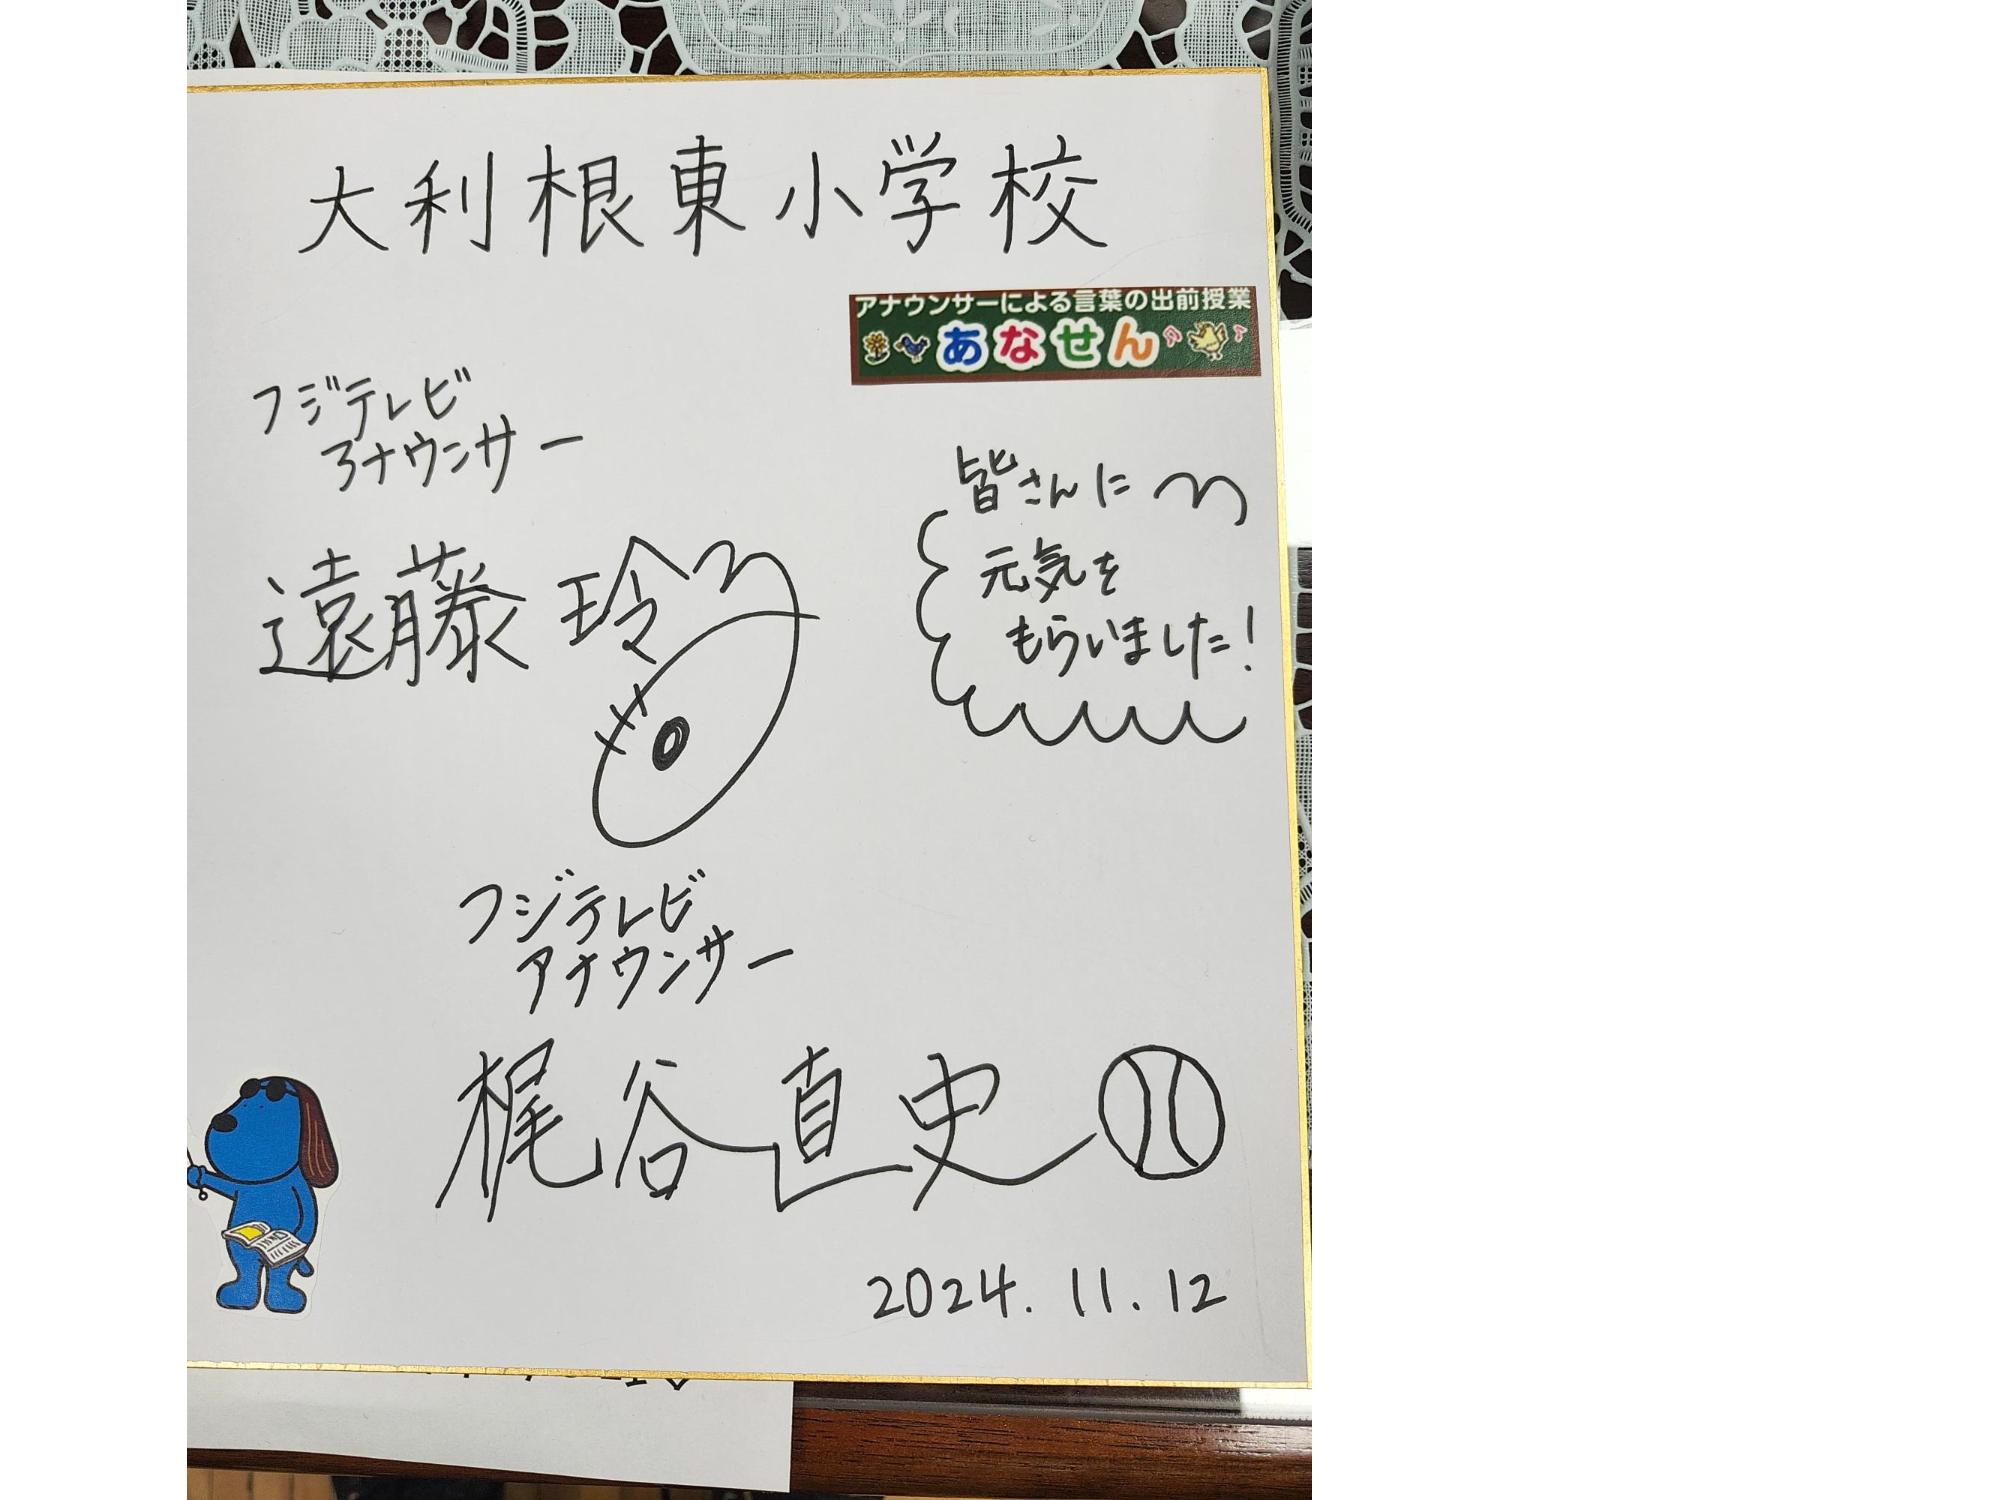 大利根東小学校
アナウンサーによる言葉の出前授業
あなせん
フジテレビ
アナウンサー
遠藤玲
皆さんに
元気を
もらいました!
フジテレビ
アナウンサー
梶谷直史
2024.11.12